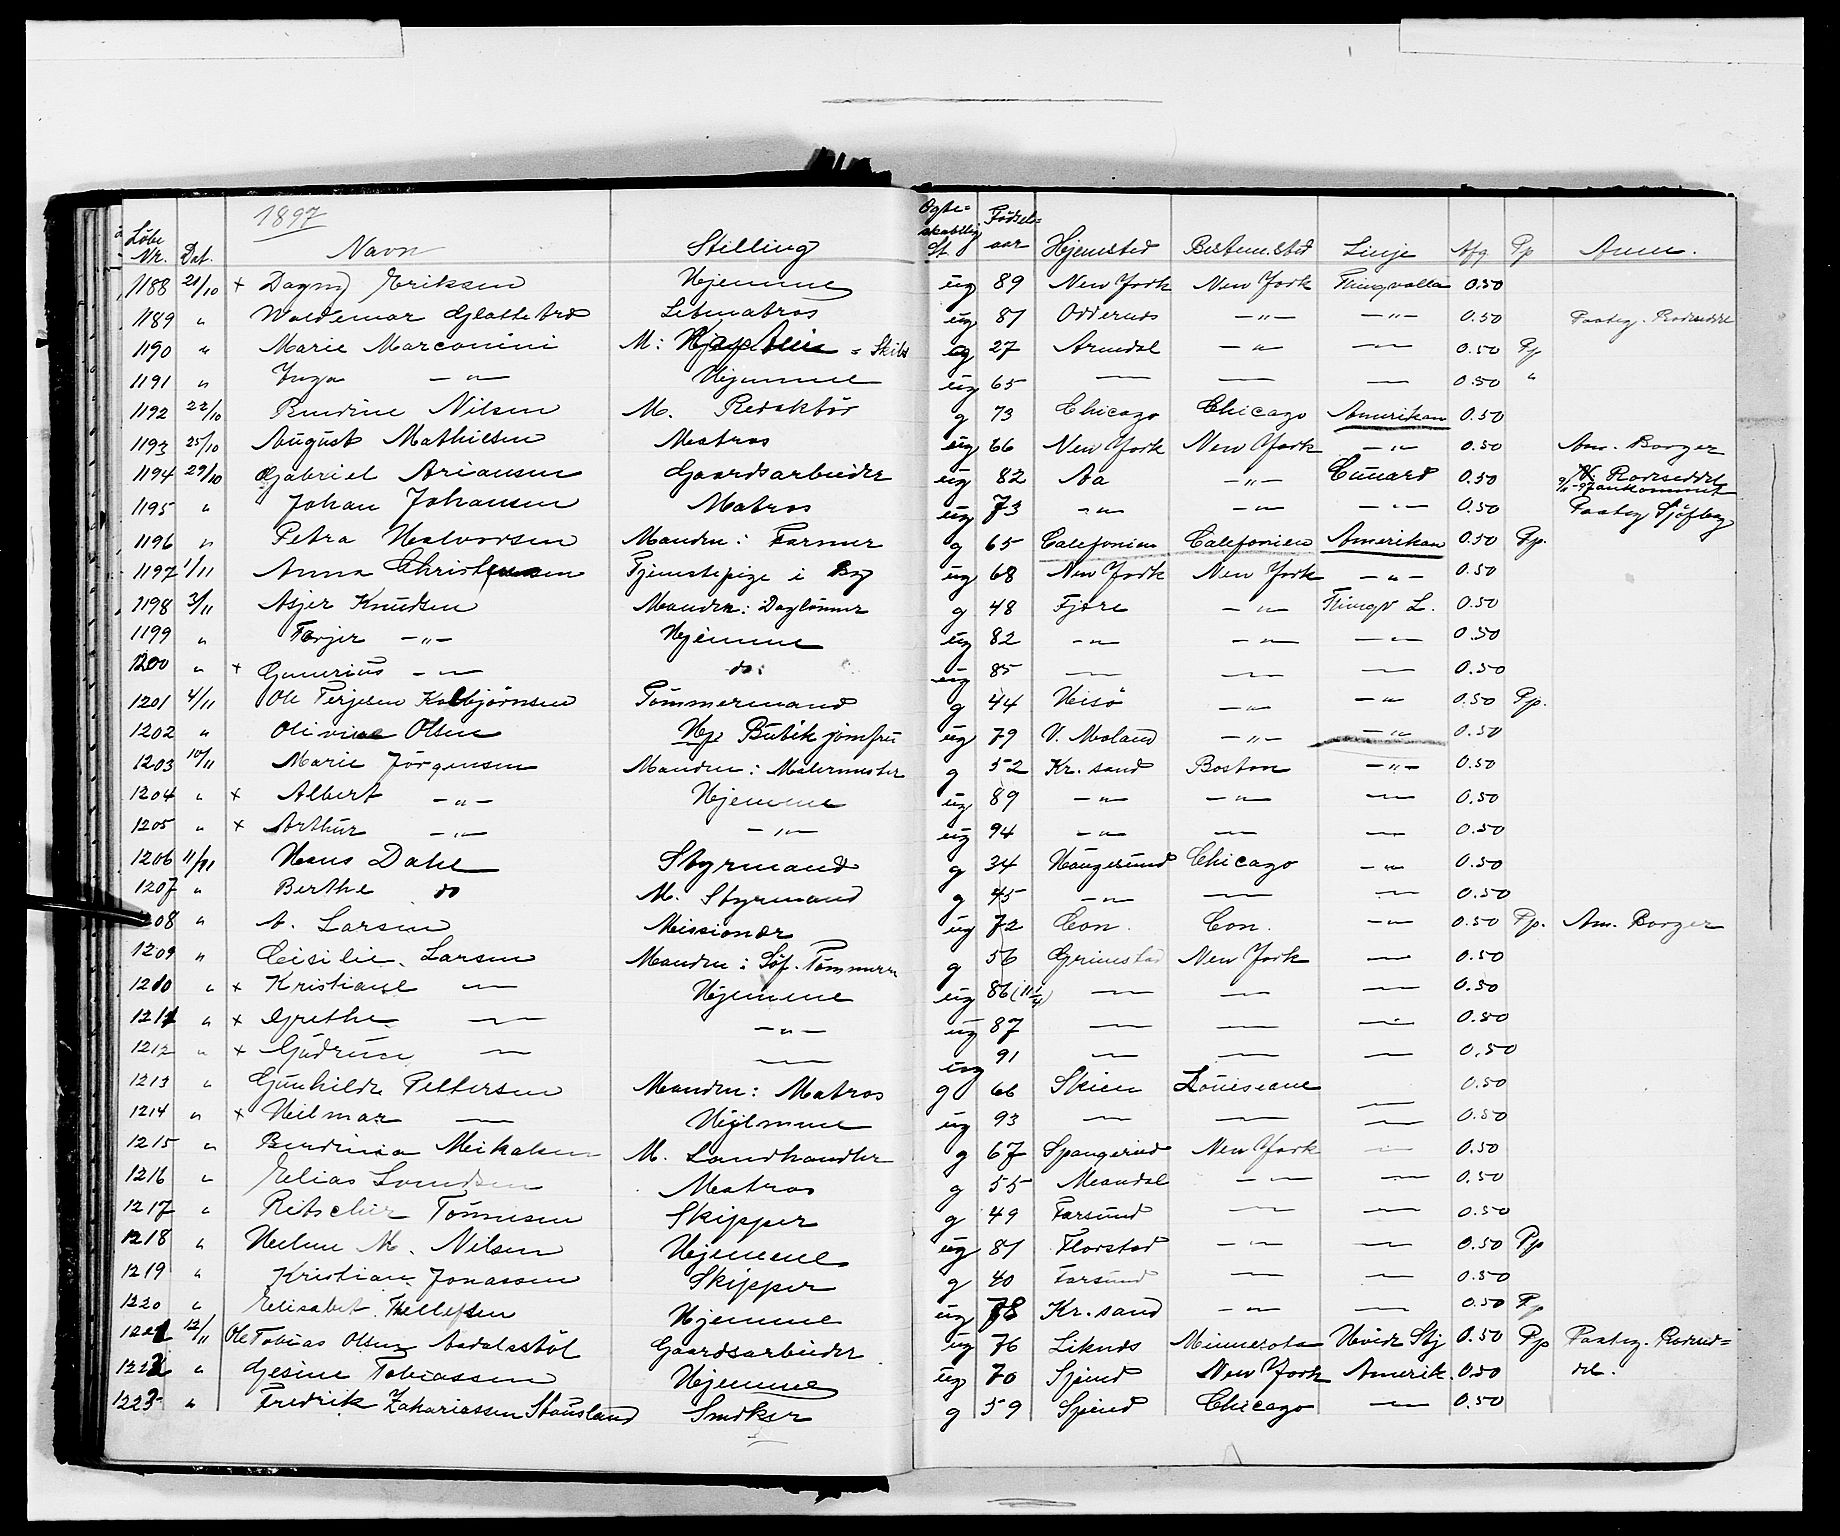 1897
Löbe Nr. Dat. Navn Stilling Ægte-skabelig st. Födsels-aar Hjemsted Bestem.sted Linje Afg. Pp Anm.
1188 21/10 + Dagny Eriksen Hjemme ug 89 New York New York Thingvalla 0.50
1189 " Waldemar Glattetrø Letmatros ug 81 Oddernes —"— —"— 0.50 Paateg. Rodseddel
1190 " Marie Marconini M: Skibs g 27 Arendal —"— — 0.50 Pp
1191 " Inga —"— Hjemme ug 65 — — — 0.50 "
1192 22/10 Nilsen M. Redaktör g 73 Chicago Chicago Amerikan 0.50
1193 25/10 August Mathiesen Matros ug 66 New York New York —"— 0.50 Am. Borger
1194 29/10 Gabriel Ariansen Gaardsarbeider ug 82 Aa —"— Cunard 0.50 Rodseddel ankommet
1195 " Johan Johansen Matros ug 73 —"— —"— —"— 0.50 Paateg Sjöfbog
1196 " Petra Halvorsen Manden: Farmer g 65 Calefonien Calefonien Amerikan 0.50 Pp.
1197 1/11 Anna Christensen Tjenestepige i By ug 68 New York New York —"— 0.50
1198 3/11 Asjer Knudsen Manden: Daglönner g 48 Fjære —"— Thingv L. 0.50
1199 " Terjer —"— Hjemme ug 82 —"— —"— —"— 0.50
1200 " + Gunerius —"— do: ug 85 — — — 0.50
1201 4/11 Ole Terjesen Kolbjörnsen Tömmermand g 44 Hisö —"— —"— 0.50 Pp.
1202 " Olivine Olsen Hj Butikjomfru ug 79 V. Moland —"— —"— 0.50
1203 10/11 Marie Jörgensen Manden: Malermester g 52 Kr. sand Boston —"— 0.50
1204 " + Albert —"— Hjemme ug 89 —"— —"— — 0.50
1205 " + Arthur —"— —"— ug 94 —"— — — 0.50
1206 11/11 Hans Dahl Styrmand g 34 Haugesund Chicago —"— 0.50
1207 " Berthe do M. Styrmand g 45 —"— — — 0.50
1208 " A. Larsen Missionær ug 72 Con. Con. —"— 0.50 Pp. Am. Borger
1209 " Cicilie Larsen Manden: Söf. Tömmerm g 56 Grimstad New York — 0.50
1210 " + Kristiane — Hjemme ug 86 (11 1/4) — — — 0.50
1211 " + Grethe — —"— ug 87 — — — 0.50
1212 " + Gudrun — — ug 91 — — — 0.50
1213 " Gunhilde Pettersen Manden: Matros g 66 Skien Louiseane — 0.50
1214 " + Hilmar — Hjemme ug 93 — — — 0.50
1215 " Berdinia Mikalsen M. Landhandler g 67 Spangereid New York — 0.50
1216 " Elias Matros g 55 Mandal —"— — 0.50
1217 " Ritscher Tönnesen Skipper g 49 Farsund — — 0.50
1218 " Helene M. Nilsen Hjemme ug 81 —"— — 0.50 Pp
1219 " Kristian Jonassen Skipper g 40 Farsund — — 0.50
1220 " Elisabet Tellefsen Hjemme ug 78 Kr. sand —"— — 0.50 Pp
1221 12/11 Ole Tobias Olsen Aadalsstöl Gaardsarbeider ug 76 Liknes Minnesota Hvide Stj 0.50 Pp Paateg. Rodsed=
1222 " Gesine Tobiassen Hjemme ug 70 New York Amerik. 0.50 del.
1223 " Fredrik Zakariassen Stausland Snedker g 59 Chicago — 0.50